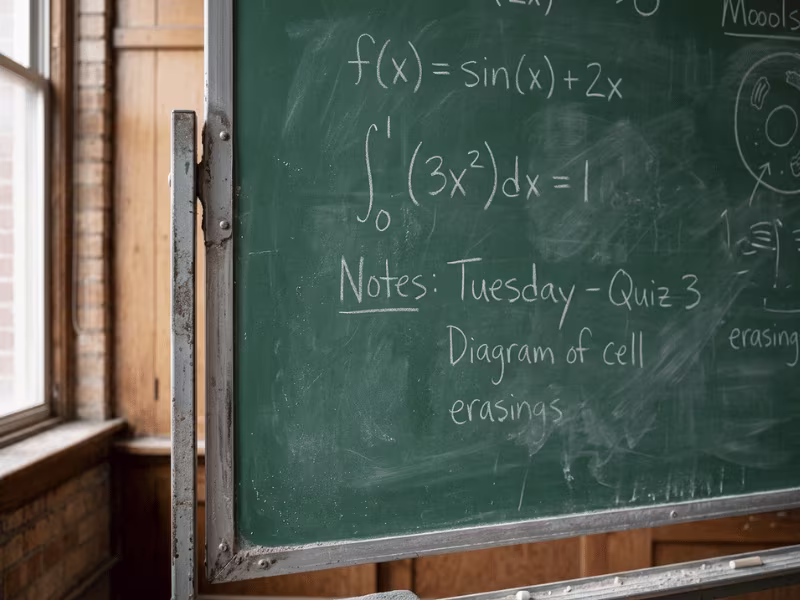 f(x) = sin(x) + 2x
∫₀¹ (3x²)dx = 1
Notes: Tuesday – Quiz 3
Diagram of cell
erasings
Moools
erasing